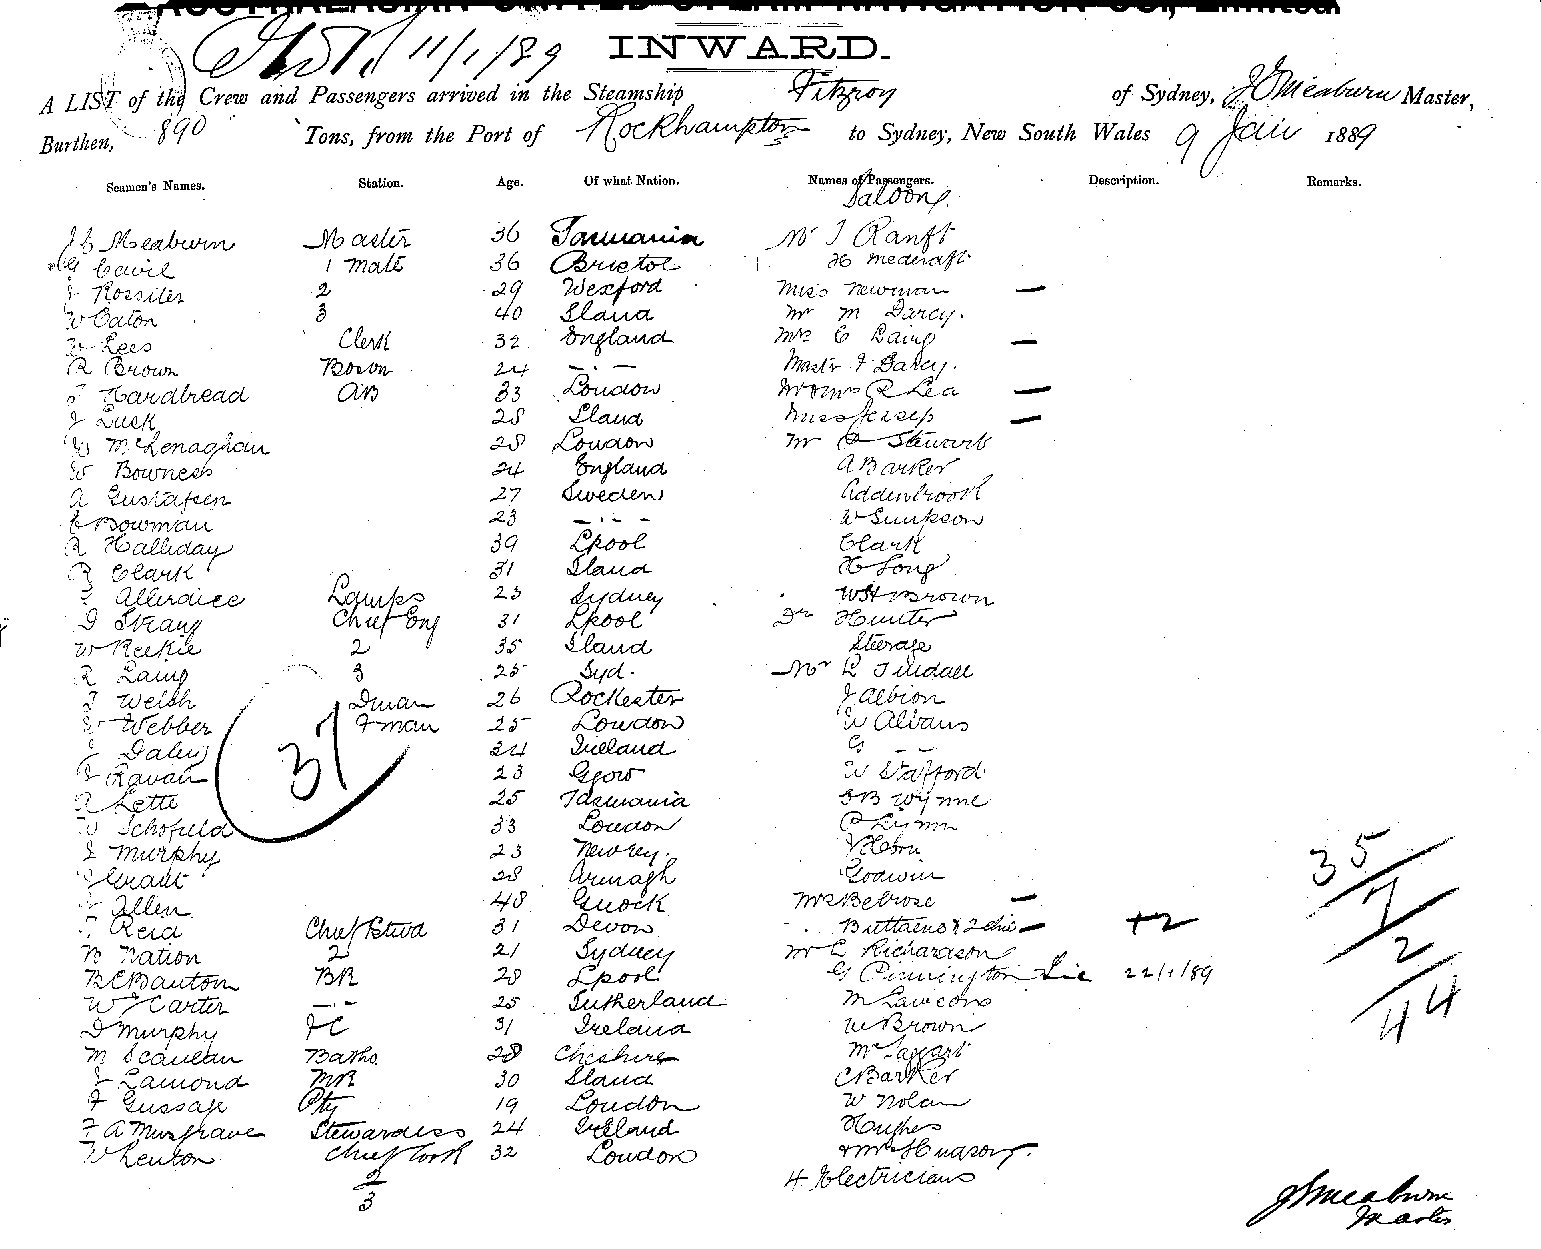 AUSTRALASIAN UNITED STEAM NAVIGATION CO., Limited
11/1/89 INWARD.
A LIST of the Crew and Passengers arrived in the Steamship Fitzroy of Sydney, J B Meaburn Master,
Burthen, 890 Tons, from the Port of Rockhampton to Sydney, New South Wales 9 Jan 1889
Seamen's Names. Station. Age. Of what Nation. Names of Passengers. Description. Remarks.
Saloon
J B Meaburn Master 36 Tasmania Mr J Ranft
G Cavil 1 Mate 36 Bristol H Medcraft
J Rossiter 2 29 Wexford Miss Newman —
W Eaton 3 40 Sland Mr M Darcy.
W Lees Clerk 32 England Mrs C Laing —
R Brown Bosun 24 - - - Mastr F Darcy.
T Hardbread AB 33 London Mr & Mrs R Lea —
J Lusk 28 Sland Miss Jessep —
W McLenaghan 28 London Mr A Stewart
W Bowness 24 England A Barker
A Gustafsen 27 Sweden Addenbrook
C Bowman 23 - - - W Simpson
R Halliday 39 Lpool Clark
R Clark 31 Sland H Long
Allerdice Lamps 23 Sydney WH Brown
D Strang Chief Eng 31 Lpool Dr Hunter
W Reekie 2 35 Sland Steerage
R Laing 3 25 Syd. Mr L Tindall
T Welsh Dman 26 Rockester J Albion
W Webber Fman 25 London W Albans
J Daley 24 Ireland G - -
J Ravan 23 Ggow W Stafford
A Lette 25 Tasmania Wynne
W Schofield 33 London P Lynn
J Murphy 23 Newrey.
J Grant 28 Armagh Godwin
J Allen 48 Mrs Belrose —
T Reid Chief Stewd 31 Devon & 2 chi — +2
N Nation 2 21 Sydney Mr C Richardson
B C Banton BR 28 Lpool G Pinnington 22/1/89
W J Carter - - - 25 Sutherland M Lawsons
D Murphy FC 31 Ireland W Brown
M Scanlan Baths 28 Cheshire McTaggart
J Lamond MR 30 Sland C Barker
F Gussage Pty 19 London W Nolan
F A Musgrave Stewardess 24 Ireland Hughes
W Lenton Chief Cook 32 London & Mrs Hudson.
2 4 Electricians
3
37
35
7
2
44
J B Meaburn
Master